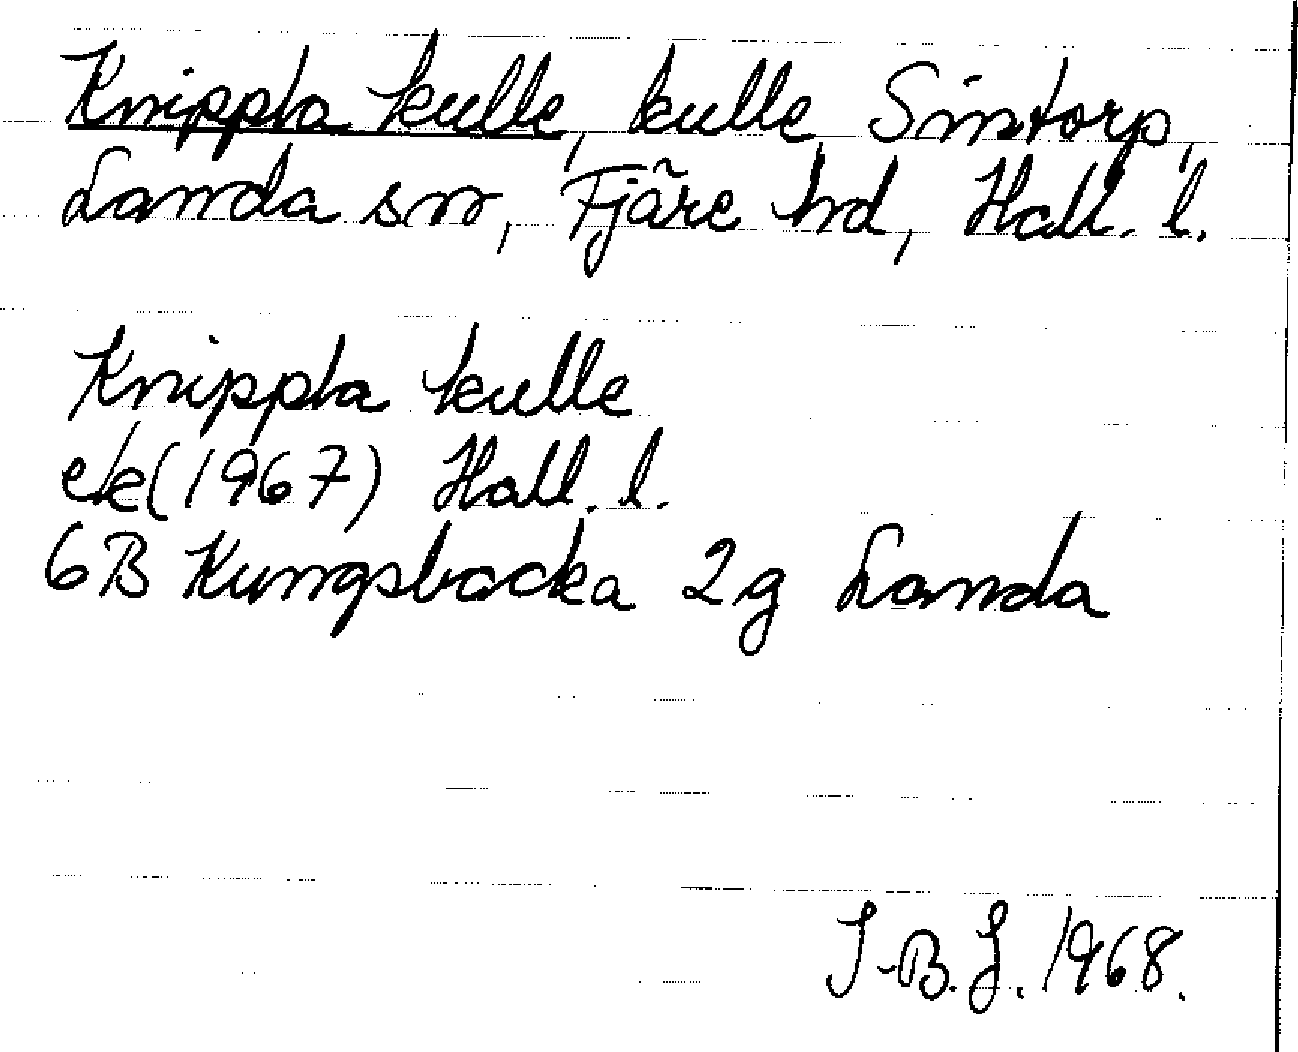 Knippla kulle, kulle Sintorp,
Landa sn, Fjäre hd, Hall. l.
Knippla kulle
ek (1967) Hall. l.
6B Kungsbacka 2g Landa
I-B. L. 1968.